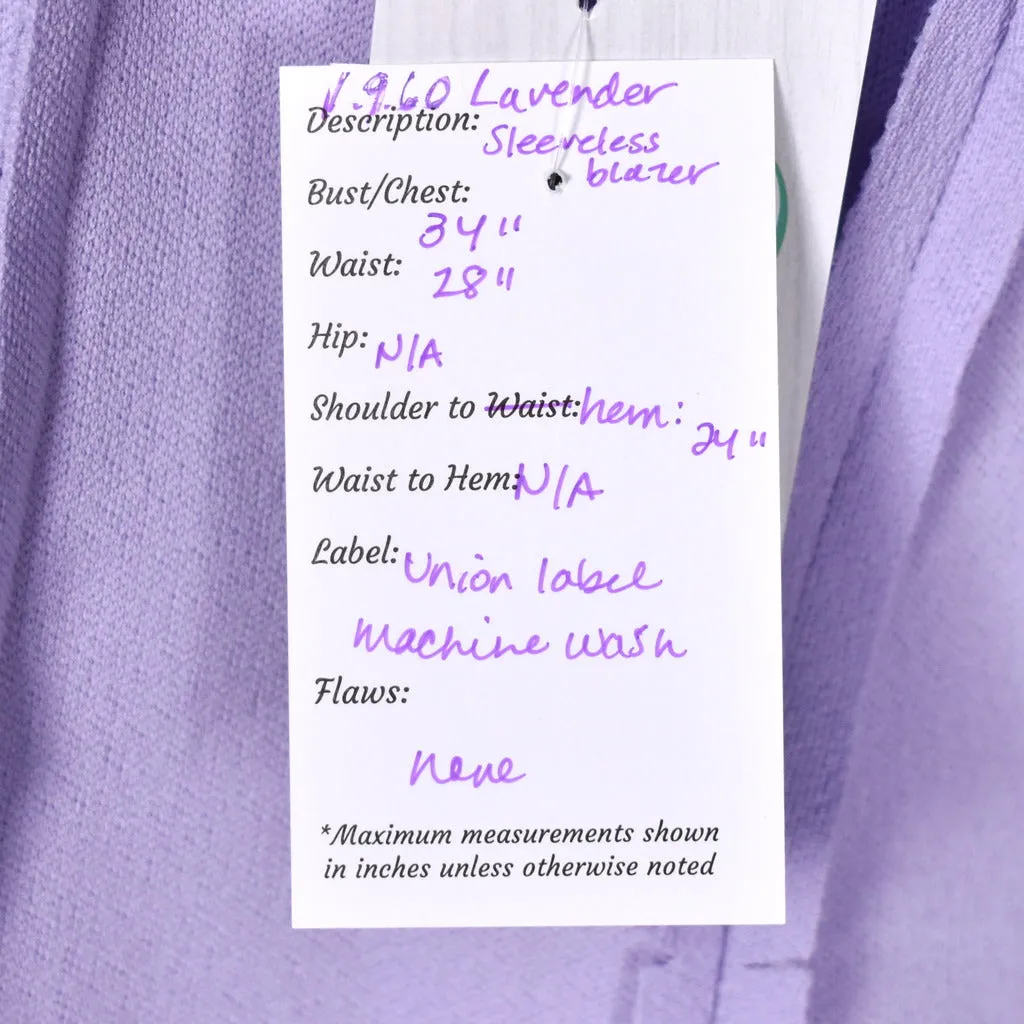 V.9.60 Lavender
Description: Sleeveless
blazer
Bust/Chest:
34"
Waist: 28"
Hip: N/A
Shoulder to Waist: hem:
24"
Waist to Hem: N/A
Label: Union label
Machine wash
Flaws:
None
*Maximum measurements shown
in inches unless otherwise noted